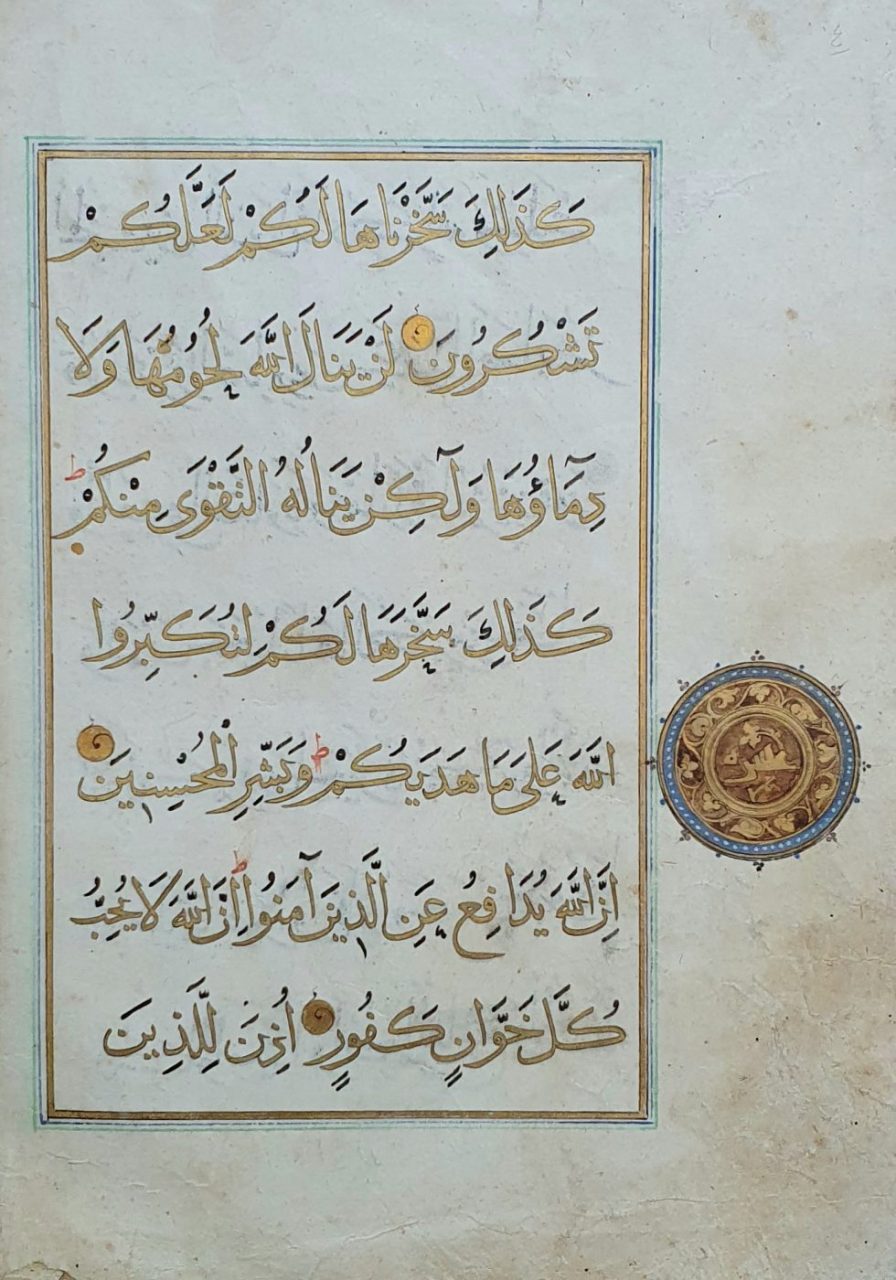 كَذَلِكَ سَخَّرْنَاهَا لَكُمْ لَعَلَّكُمْ
تَشْكُرُونَ لَنْ يَنَالَ اللَّهَ لُحُومُهَا وَلَا
دِمَآؤُهَا وَلَٰكِنْ يَنَالُهُ التَّقْوَى مِنْكُمْ ط
كَذَلِكَ سَخَّرَهَا لَكُمْ لِتُكَبِّرُوا
اللَّهَ عَلَى مَا هَدَيكُمْ ط وَبَشِّرِ الْمُحْسِنِينَ
اِنَّ اللَّهَ يُدَافِعُ عَنِ الَّذِينَ آمَنُوا ط اِنَّ اللَّهَ لَا يُحِبُّ
كُلَّ خَوَّانٍ كَفُورٍ اُذِنَ لِلَّذِينَ
٤